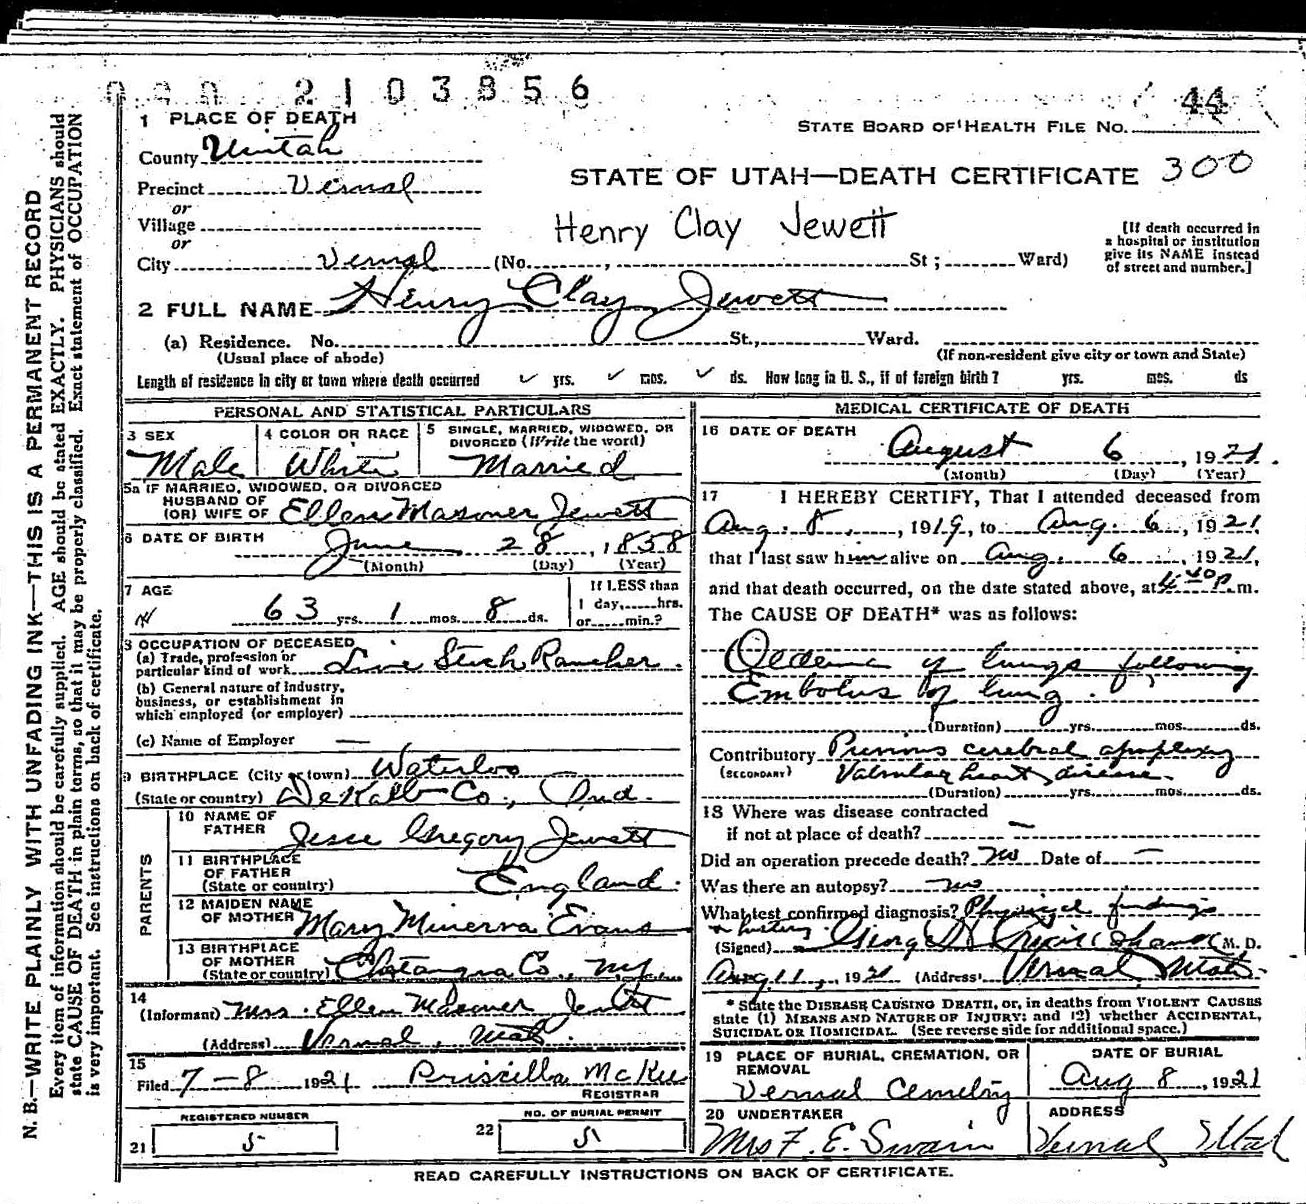 2103856
44
1 PLACE OF DEATH
STATE BOARD OF HEALTH FILE NO.
County Uintah
STATE OF UTAH—DEATH CERTIFICATE 300
Precinct Vernal
or
Village
or
City Vernal (No. , St ; Ward)
Henry Clay Jewett
[If death occurred in
a hospital or institution
give its NAME instead
of street and number.]
2 FULL NAME Henry Clay Jewett
(a) Residence. No. St., Ward.
(Usual place of abode) (If non-resident give city or town and State)
Length of residence in city or town where death occurred yrs. mos. ds. How long in U. S., if of foreign birth? yrs. mos. ds
PERSONAL AND STATISTICAL PARTICULARS
3 SEX
Male
4 COLOR OR RACE
White
5 SINGLE, MARRIED, WIDOWED, OR
DIVORCED (Write the word)
Married
5a IF MARRIED, WIDOWED, OR DIVORCED
HUSBAND OF
(OR) WIFE OF Ellen Masoner Jewett
6 DATE OF BIRTH
June 28, 1858
(Month) (Day) (Year)
7 AGE
63 yrs. 1 mos. 8 ds.
If LESS than
1 day, hrs.
or min.?
8 OCCUPATION OF DECEASED
(a) Trade, profession or
particular kind of work Live Stock Rancher.
(b) General nature of industry,
business, or establishment in
which employed (or employer)
(c) Name of Employer —
9 BIRTHPLACE (City or town) Waterloo
(State or country) DeKalb Co., Ind.
PARENTS
10 NAME OF
FATHER Jesse Gregory Jewett
11 BIRTHPLACE
OF FATHER
(State or country) England.
12 MAIDEN NAME
OF MOTHER Mary Minerva Evans
13 BIRTHPLACE
OF MOTHER
(State or country) Chatauqua Co., N.Y.
14
(Informant) Mrs. Ellen Masoner Jewett
(Address) Vernal, Utah
15
Filed 7-8 1921 Priscilla McKee
REGISTRAR
REGISTERED NUMBER
21 5
NO. OF BURIAL PERMIT
22 5
MEDICAL CERTIFICATE OF DEATH
16 DATE OF DEATH
August 6, 1921.
(Month) (Day) (Year)
17 I HEREBY CERTIFY, That I attended deceased from
Aug. 8, 1919, to Aug. 6, 1921
that I last saw him alive on Aug. 6, 1921,
and that death occurred, on the date stated above, at 4 40 P.m.
The CAUSE OF DEATH* was as follows:
Oedema of lungs following
Embolus of lung.
(Duration) yrs. mos. ds.
Contributory Previous cerebral apoplexy
(SECONDARY) Valvular heart disease.
(Duration) yrs. mos. ds.
18 Where was disease contracted
if not at place of death? —
Did an operation precede death? no Date of —
Was there an autopsy? no
What test confirmed diagnosis? Physical findings
& history.
(Signed) M. D.
Aug 11, 1921 (Address) Vernal Utah.
* State the DISEASE CAUSING DEATH, or, in deaths from VIOLENT CAUSES
state (1) MEANS AND NATURE OF INJURY; and (2) whether ACCIDENTAL,
SUICIDAL OR HOMICIDAL. (See reverse side for additional space.)
19 PLACE OF BURIAL, CREMATION, OR
REMOVAL
Vernal Cemetry
DATE OF BURIAL
Aug 8, 1921
20 UNDERTAKER
Mrs F. E. Swain
ADDRESS
Vernal Utah
READ CAREFULLY INSTRUCTIONS ON BACK OF CERTIFICATE.
N. B.—WRITE PLAINLY WITH UNFADING INK—THIS IS A PERMANENT RECORD
Every item of information should be carefully supplied. AGE should be stated EXACTLY. PHYSICIANS should
state CAUSE OF DEATH in plain terms, so that it may be properly classified. Exact statement of OCCUPATION
is very important. See instructions on back of certificate.